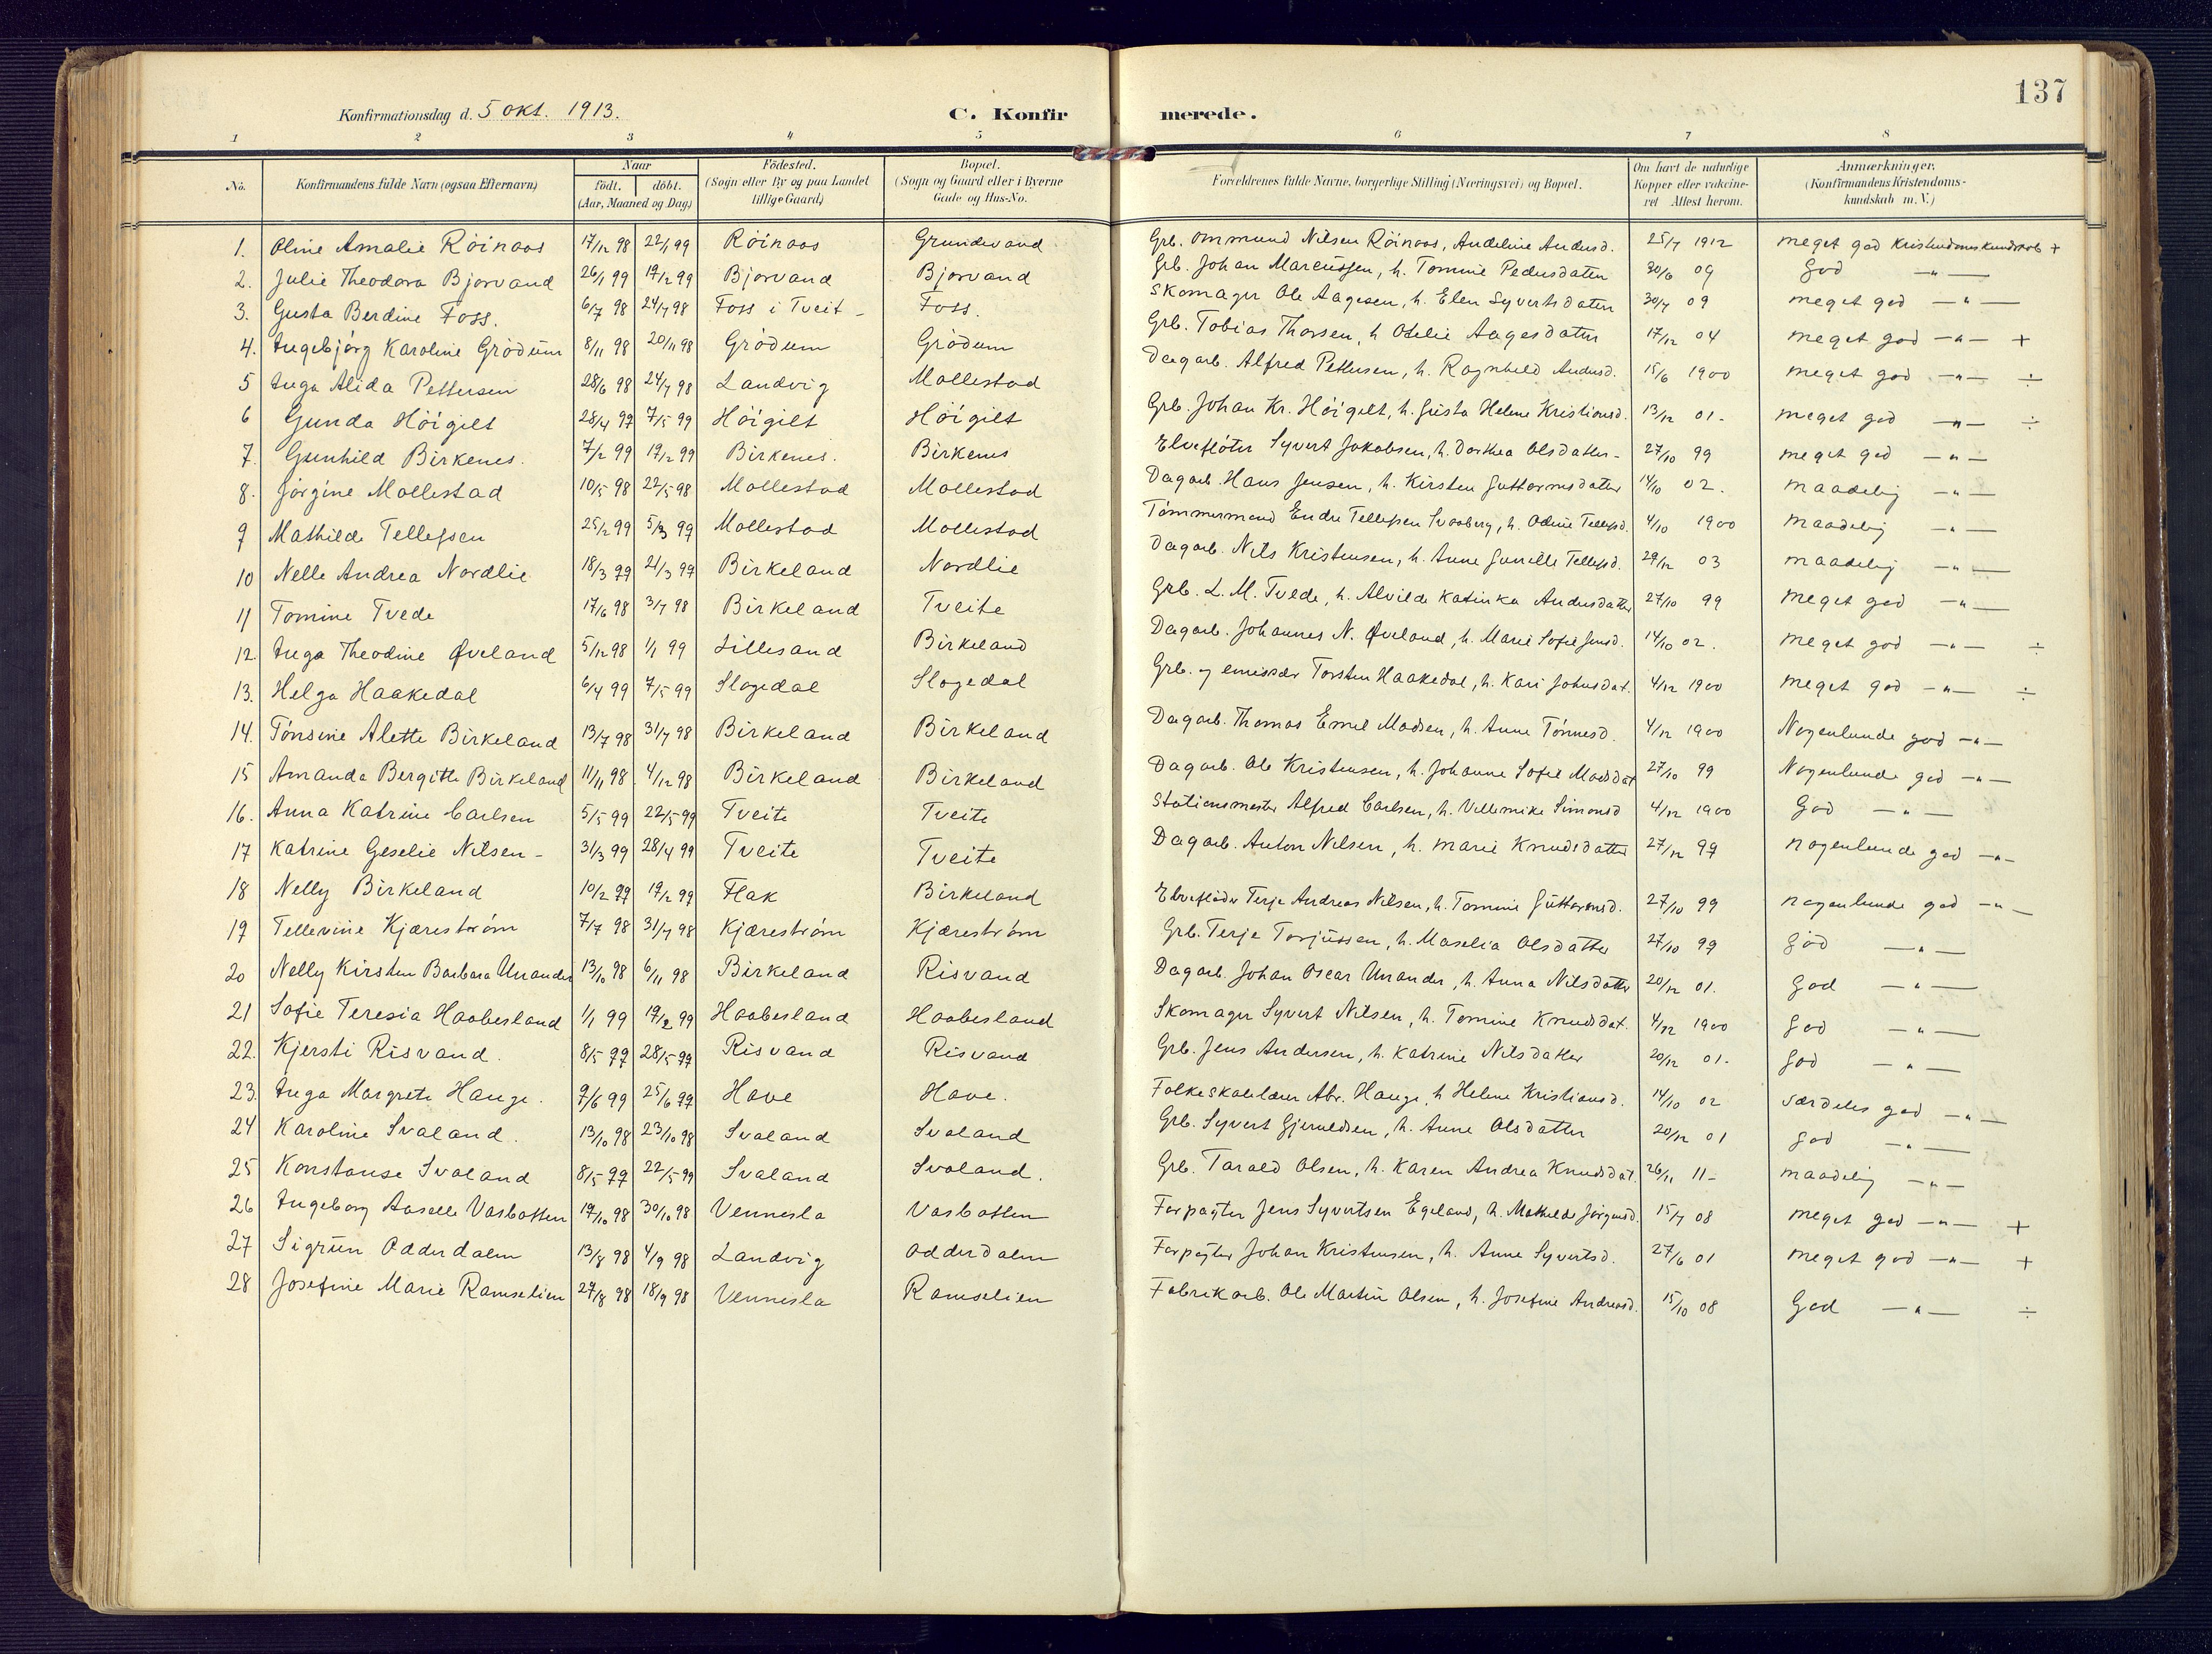 137
Konfirmationsdag d. 5 okt. 1913. C. Konfirmerede.
1 2 3 4 5 6 7 8
No. Konfirmandens fulde Navn (ogsaa Efternavn) Naar födt. döbt. (Aar, Maaned og Dag) Födested. (Sogn eller By og paa Landet tillige Gaard) Bopæl. (Sogn og Gaard eller i Byerne Gade og Hus-No. Forældrenes fulde Navne, borgerlige Stilling (Næringsvei) og Bopæl. Om havt de naturlige Kopper eller vakcineret Attest herom. Anmærkninger. (Konfirmandens Kristendomskundskab m. V.)
1. Oline Amalie Röinaas 17/12 98 22/1 99 Röinaas Grundevand Grb. Ommund Nilsen Röinaas, Andeline Andersd. 25/7 1912 meget god Kristendomskundskab +
2. Julie Theodora Bjorvand 26/1 99 19/2 99 Bjorvand Bjorvand Grb. Johan Marcussen, h. Tomine Pedersdatter 30/6 09 God —"—
3. Gusta Berdine Foss. 6/7 98 24/7 98 Foss i Tveit - Foss. Skomager Ole Aagesen, h. Elen Syvertsdatter 30/7 09 meget god —"—
4. Ingebjörg Karoline Grödum 8/11 98 20/11 98 Grödum Grödum Grb. Tobias Thorsen, h Otelie Aagesdatter 17/12 04 meget god —"— +
5 Inga Alida Pettersen 28/6 98 24/7 98 Landvig Mollestad Dagarb. Alfred Pettersen, h. Ragnhild Andersd. 15/6 1900 meget god —"— ÷
6 Gunda Höigilt 28/4 99 7/5 99 Höigilt Höigilt Grb. Johan Kr. Höigilt, h. Gusta Helene Kristiansd. 13/12 01- meget god —"— ÷
7. Gunhild Birkenes. 7/2 99 19/2 99 Birkenes. Birkenes Elvefløter Syvert Jakobsen, h. Dorthea Olsdatter- 27/10 99 meget god —"—
8. Jørgine Mollestad 10/5 98 22/5 98 Mollestad Mollestad Dagarb. Hans Jensen, h. Kirsten Guttormsdatter 14/10 02. maadelig —"—
9 Mathilde Tellefsen 25/2 99 5/3 99 Mollestad Mollestad Tömmermand Endre Tellefsen Svaaberg, h. Odine Tellefsd. 4/10 1900 maadelig —"—
10 Nelle Andrea Nordlie 18/3 99 21/3 99 Birkeland Nordlie Dagarb. Nils Kristensen, h. Anne Gunille Tellefsd. 29/12 03 maadelig —"—
11 Tomine Tvede 17/6 98 3/7 98 Birkeland Tveite Grb. L. M. Tvede, h. Alvilde Katinka Andersdatter 27/10 99 meget god —"—
12. Inga Theodine Øveland 5/12 98 1/1 99 Lillesand Birkeland Dagarb. Johannes N. Øveland, h. Marie Sofie Jensd. 14/10 02. meget god —"— ÷
13. Helga Haakedal 6/4 99 7/5 99 Slogedal Slogedal Grb. og emissær Torsten Haakedal, h. Kari Johnsdat. 4/12 1900 meget god —"— ÷
14. Tönsine Alette Birkeland 13/7 98 31/7 98 Birkeland Birkeland Dagarb. Thomas Emil Madsen, h. Anne Tönnesd. 4/12 1900 Nogenlunde god —"—
15 Amanda Bergitte Birkeland 11/11 98. 4/12 98 Birkeland Birkeland Dagarb. Ole Kristensen, h. Johanne Sofie Madsdat 27/10 99 Nogenlunde god —"—
16. Anna Katrine Carlsen 5/5 99 22/5 99 Tveite Tveite Stationsmester Alfred Carlsen, h. Villemike Simonsd 4/12 1900 God —"—
17 Katrine Geselie Nilsen- 31/3 99 28/4 99 Tveite Tveite Dagarb. Anton Nilsen, h. Marie Knudsdatter 27/12 99 nogenlunde god —"—
18 Nelly Birkeland 10/2 99 19/2 99 Flak Birkeland Elvefløder Terje Andreas Nilsen, h. Tomine Guttormsd. 27/10 99 nogenlunde god —"—
19 Tellevine Kjærestrøm 7/7 98 31/7 98 Kjærestrøm Kjærestrøm Grb. Terje Torjussen, h. Maselia Olsdatter 27/10 99 god —"—
20 Nelly Kirsten Barbara Unander 13/10 98 6/11 98 Birkeland Risvand Dagarb. Johan Oscar Unander, h. Anna Nilsdatter 20/12 01. God —"—
21 Sofie Teresia Haabesland 1/1 99 19/2 99 Haabesland Haabesland Skomager Syvert Nilsen, h. Tomine Knudsdat. 4/12 1900 God —"—
22. Kjersti Risvand. 8/5 99 28/5 99 Risvand Risvand Grb. Jens Andersen, h. Katrine Nilsdatter 20/12 01- God —"—
23. Inga Margrete Hauge. 9/6 99 25/6 99 Have Have. Folkeskolelærer Abr. Hauge, h Helene Kristiansd. 14/10 02 særdeles god —"—
24 Karoline Svaland. 13/10 98 23/10 98 Svaland Svaland Grb. Syvert Gjeruldsen, h. Anne Olsdatter 20/12 01 god —"—
25 Konstanse Svaland 8/5 99 22/5 99 Svaland Svaland. Grb. Tarald Olsen, h. Karen Andrea Knudsdat. 26/11 11- maadelig —"—
26 Ingeborg Aaselle Vasbotten 19/10 98 30/10 98 Vennesla Vasbotten Forpagter Jens Syvertsen Egeland, h. Mathilde Jörgensd. 15/7 08 meget god —"— +
27 Sigrun Odderdalen 13/8 98 4/9 98 Landvig Odderdalen Forpagter Johan Kristensen, h. Anne Syvertsd. 27/6 01 meget god —"— +
28 Josefine Marie Ramselien 27/8 98 18/9 98 Vennesla Ramselien Fabrikarb. Ole Martin Olsen, h. Josefine Andreasd. 15/10 08 God —"— ÷